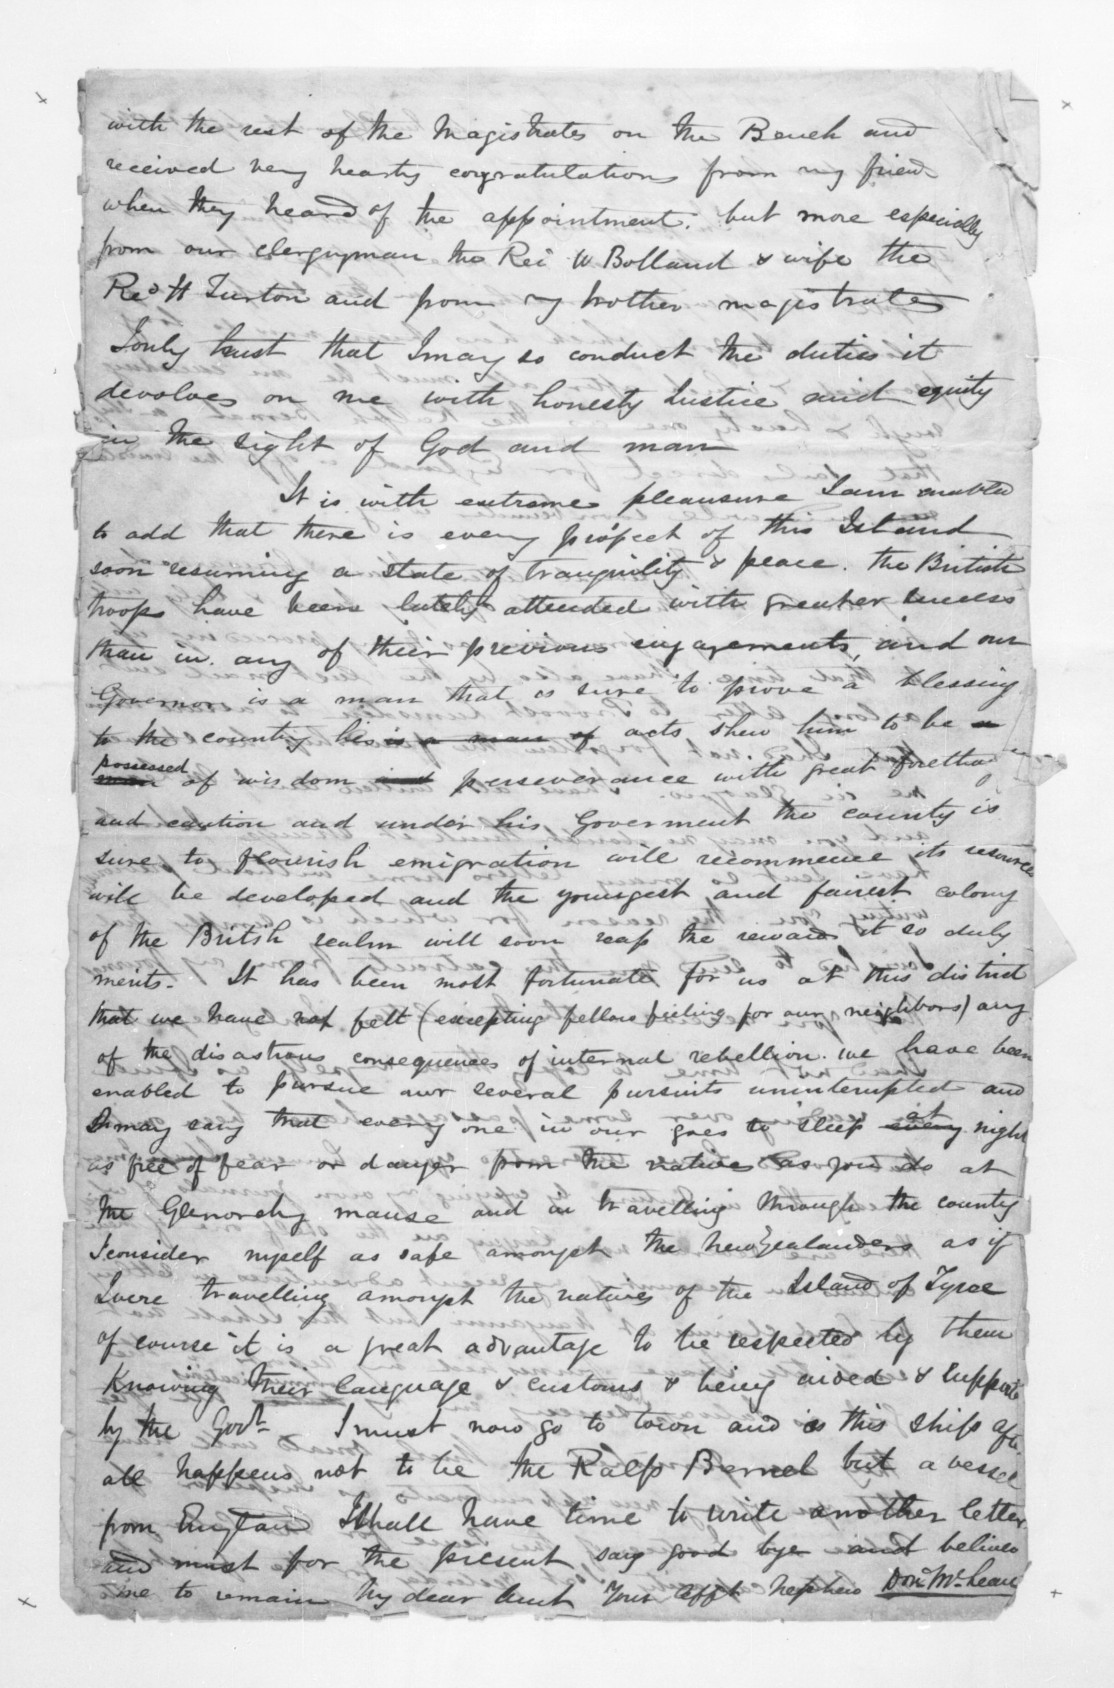 with the rest of the Magistrates on the Bench and
received very hearty congratulations from my friends
when they heard of the appointment. but more especially
from our clergyman the Rev W Bolland & wife the
Revd H Turton and from my brother magistrates
I only trust that I may so conduct the duties it
devolves on me with honesty Justice and equity
in the sight of God and man
It is with extreme pleausure I am enabled
to add that there is every prospect of this Island
soon resuming a state of tranquility & peace. the British
troops have been lately attended with greater success
than in any of their previous engagements, and our
Governor is a man that is sure to prove a blessing
to the country his is a man of acts shew him to be a
possessed
man of wisdom and perseverance with great forethought
and caution and under his Goverment the county is
sure to flourish emigration will recommence its resources
will be developed and the youngest and fairest colony
of the British realm will soon reap the reward it so duly
merits. It has been most fortunate for us at this district
that we have not felt (excepting fellow feeling for our neighbors) any
of the disastrous consequences of internal rebellion. we have been
enabled to pursue our several pursuits uninterupted and
I may say that every one in our goes to sleep every at night
as free of fear or danger from the natives as you do at
the Glenorchy manse and in travelling through the county
I consider myself as safe amongst the New Zealanders as if
I were travelling amongst the natives of the Island of Tyree
of course it is a great advantage to be respected by them
Knowing their language & customs & being aided & support
by the Govt. I must now go to town and as this ship after
all happens not to be the Ralph Bernel but a vessel
from England I shall have time to write another letter
and must for the present say good bye and believe
me to remain My dear Aunt Your afft Nephew Don. McLean